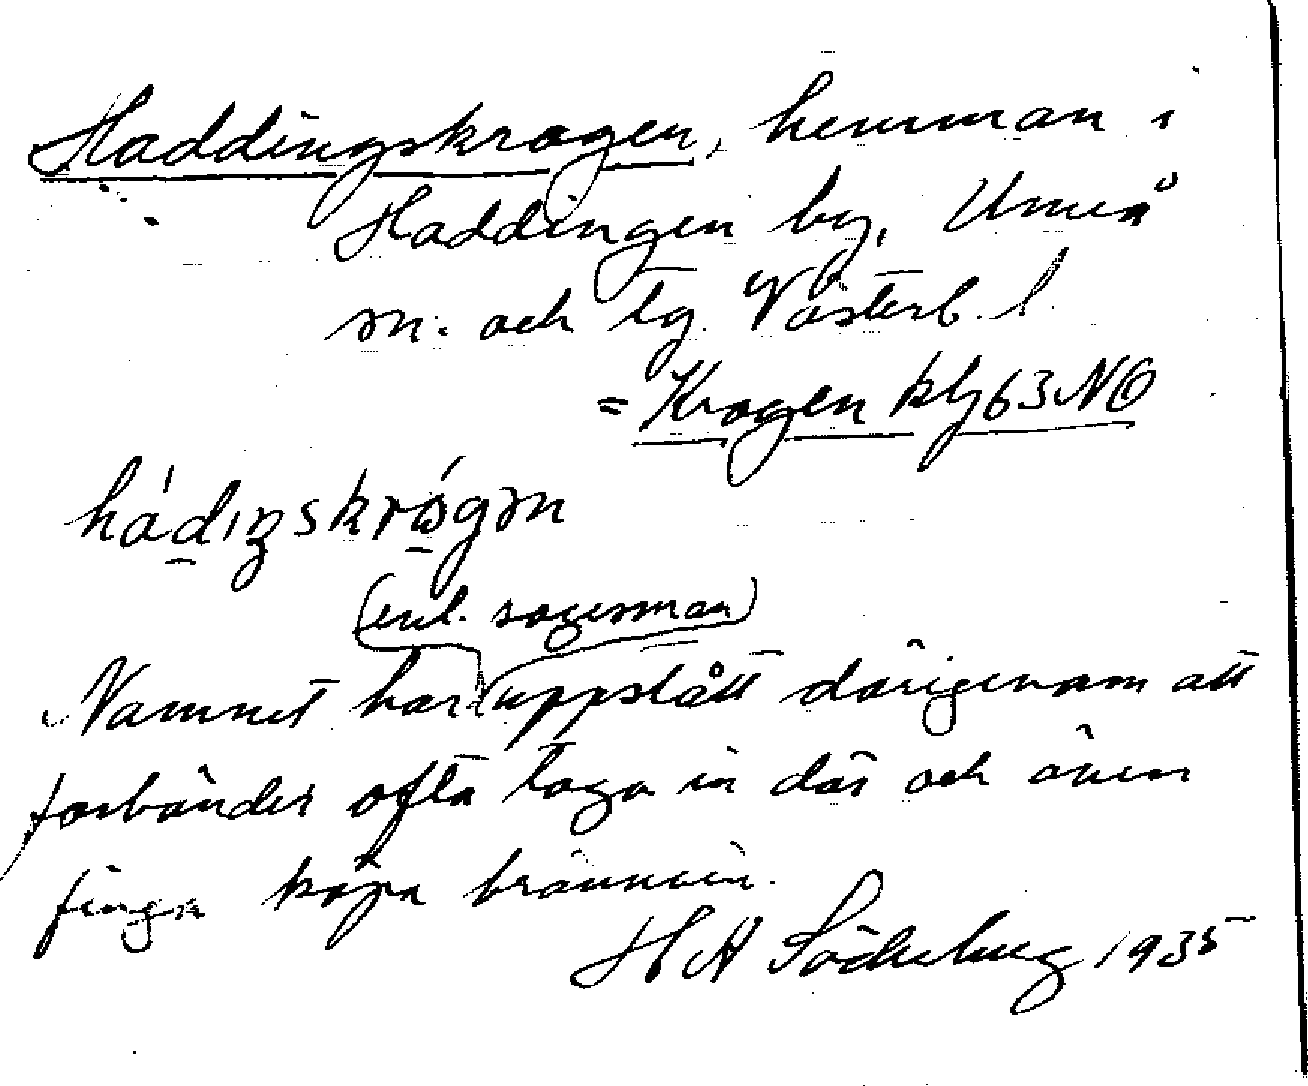 Haddingskrogen, hemman i
Haddingen by, Umeå
sn. och tg. Västerb. l.
= Krogen kbl 63 NO
hádiŋskrógən
(enl. sagesman)
Namnet har uppstått därigenom att
forbönder ofta togo in där och även
fingo köpa brännvin.
H A Söderberg 1935